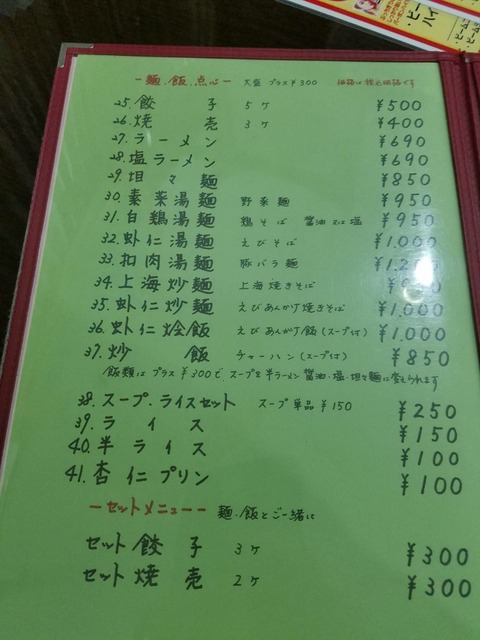 －麺.飯.点心－ 大盛 プラス¥300 価格は税込価格です
25.餃子 5ヶ ¥500
26.焼売 3ヶ ¥400
27.ラーメン ¥690
28.塩ラーメン ¥690
29.坦々麺 ¥850
30.素菜湯麺 野菜麺 ¥950
31.白鶏湯麺 鶏そば 醤油又は塩 ¥950
32.虾仁湯麺 えびそば ¥1.000
33.扣肉湯麺 豚バラ麺
34.上海炒麺 上海焼きそば
35.虾仁炒麺 えびあんかけ焼きそば ¥1.000
36.虾仁烩飯 えびあんかけ飯(スープ付) ¥1.000
37.炒飯 チャーハン(スープ付) ¥850
飯類はプラス¥300でスープを半ラーメン 醤油.塩.坦々麺に変えられます
38.スープ.ライスセット スープ単品¥150 ¥250
39.ライス ¥150
40.半ライス ¥100
41.杏仁プリン ¥100
－セットメニュー－ 麺.飯とご一緒に
セット餃子 3ヶ ¥300
セット焼売 2ヶ ¥300